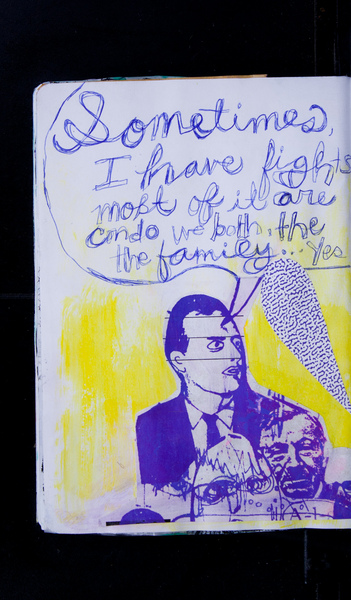 Sometimes,
I have fights
most of it are
condo we both, the
the family... Yes